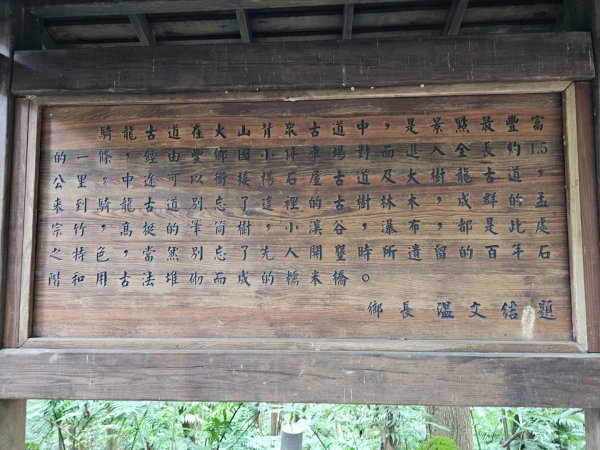 騎龍古道在大山背眾古道中，是景點最豐富
的一條，經由豐鄉小停車場對面進入全長約1.5
公里，中途可以接石古道及大龍古道，
來到騎龍古道別忘了這裡的古樹，林木成群，孟
宗竹，高挺的筆筒樹，小溪谷瀑布，都是此處
之特色，當然別忘了先人開墾時所遺留的百年石
階和用古法堆砌而成的糯米橋。
鄉長 溫文結 題